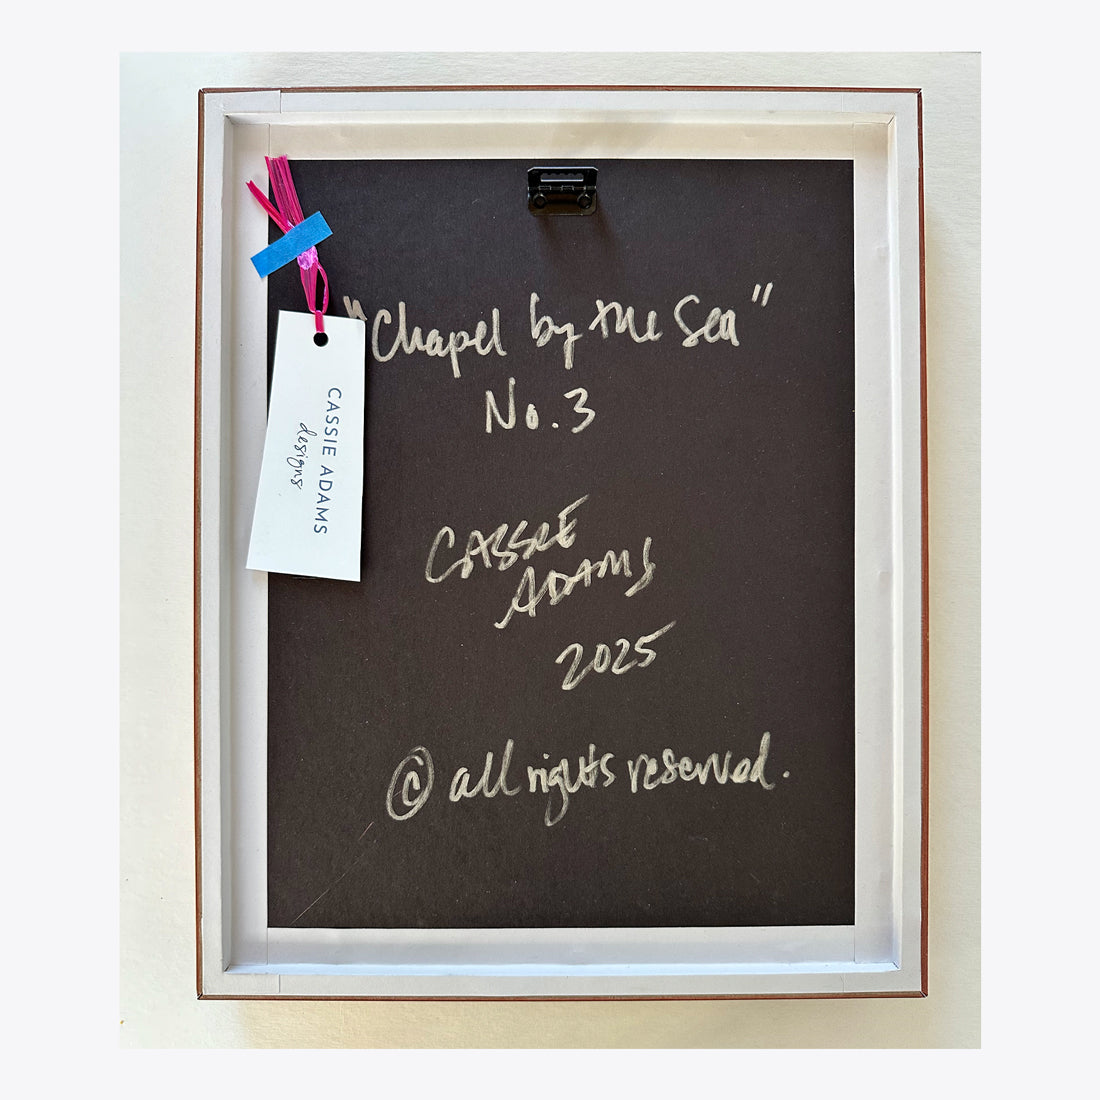 "Chapel by the Sea"
No. 3
CASSIE
ADAMS
2025
© all rights reserved.
CASSIE ADAMS
designs